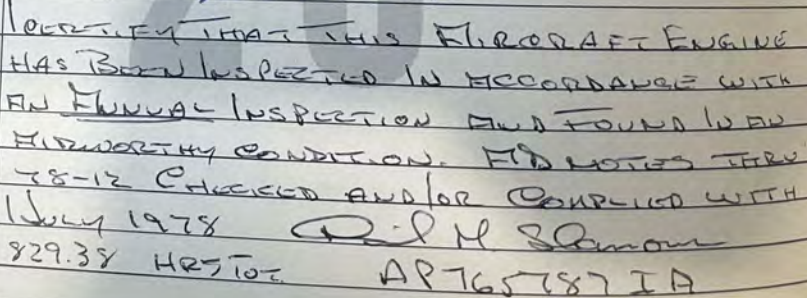 I CERTIFY THAT THIS AIRCRAFT ENGINE
HAS BEEN INSPECTED IN ACCORDANCE WITH
AN ANNUAL INSPECTION AND FOUND IN AN
AIRWORTHY CONDITION. AD NOTES THRU
78-12 CHECKED AND/OR COMPLIED WITH
1 JULY 1978
829.38 HRS TOT. AP765787 IA